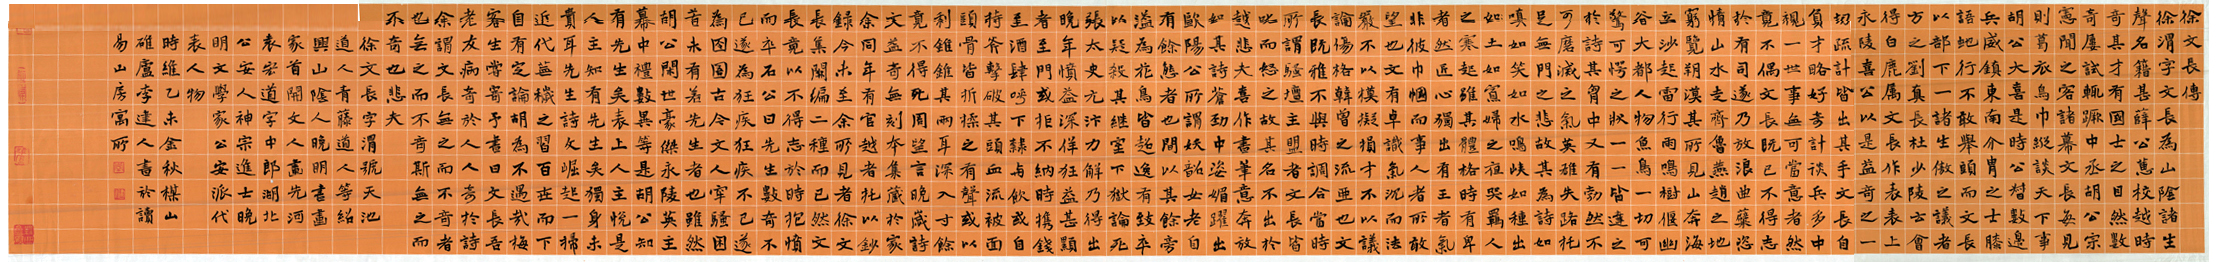 徐文長傳
徐渭字文長為山陰諸生
聲名籍甚薛公蕙校越時
奇其才有國士之目然數
奇屢試輒蹶中丞胡公宗
憲聞之客諸幕文長每見
則葛衣烏巾縱談天下事
胡公大喜是時公督數邊
兵威鎮東南介胄之士膝
語蛇行不敢舉頭而文長
以部下一諸生傲之議者
方之劉真長杜少陵云會
得白鹿屬文長作表表上
永陵喜公以是益奇之一
切疏計皆出其手文長自
負才略好奇計談兵多中
視一世事無可當意者然
竟不偶文長既已不得志
於有司遂乃放浪曲糵恣
情山水走齊魯燕趙之地
窮覽朔漠其所見山奔海
立沙起雷行雨鳴樹偃幽
谷大都人物魚鳥一切可
驚可愕之狀一一皆達之
於詩其胸中又有勃然不
可磨滅之氣英雄失路托
足無門之悲故其為詩如
嗔如笑如水鳴峽如種出
如土如寡婦之夜哭羈人
之寒起雖其體格時有卑
者然匠心獨出有王者氣
非彼巾幗而事人者所敢
望也文有卓識氣沉而法
嚴不以模擬損才不以議
論傷格韓曾之流亞也文
長既雅不與時調合當時
所謂騷壇主盟者文長皆
叱而怒之故其名不出於
越悲夫喜作書筆意奔放
如其詩蒼勁中姿媚躍出
歐陽公所謂妖韶女老自
有餘態者也間以其餘旁
溢為花鳥皆超逸有致卒
以疑殺其繼室下獄論死
張太史元汴力解乃得出
晚年憤益深佯狂益甚顯
者至門或拒不納時攜錢
至酒肆呼下隸與飲或自
持斧擊破其頭血流被面
頭骨皆折揉之有聲或以
利錐錐其兩耳深入寸餘
竟不得死周望言晚歲詩
文益奇無刻本集藏於家
余同年有官越者托以鈔
錄今未至余所見者徐文
長集闕編二種而已然文
長竟以不得志於時抱憤
而卒石公曰先生數奇不
已遂為狂疾狂疾不已遂
為囹圄古今文人牢騷困
苦未有若先生者也雖然
胡公間世豪傑永陵英主
幕中禮數異等是胡公知
有先生矣表上人主悅是
人主知有先生矣獨身未
貴耳先生詩文崛起一掃
近代蕪穢之習百世而下
自有定論胡為不遇哉梅
客生嘗寄予書曰文長吾
老友病奇於人人奇於詩
余謂文長無之而不奇者
也無之而不奇斯無之而
不奇也悲夫
徐文長字渭號天池
道人青藤道人等紹
興山陰人晚明書畫
家首開文人畫先河
袁宏道字中郎湖北
公安人神宗進士晚
明文學家公安派代
表人物
時維乙未金秋楳山
碓盧李建人書於讀
易山房寓所